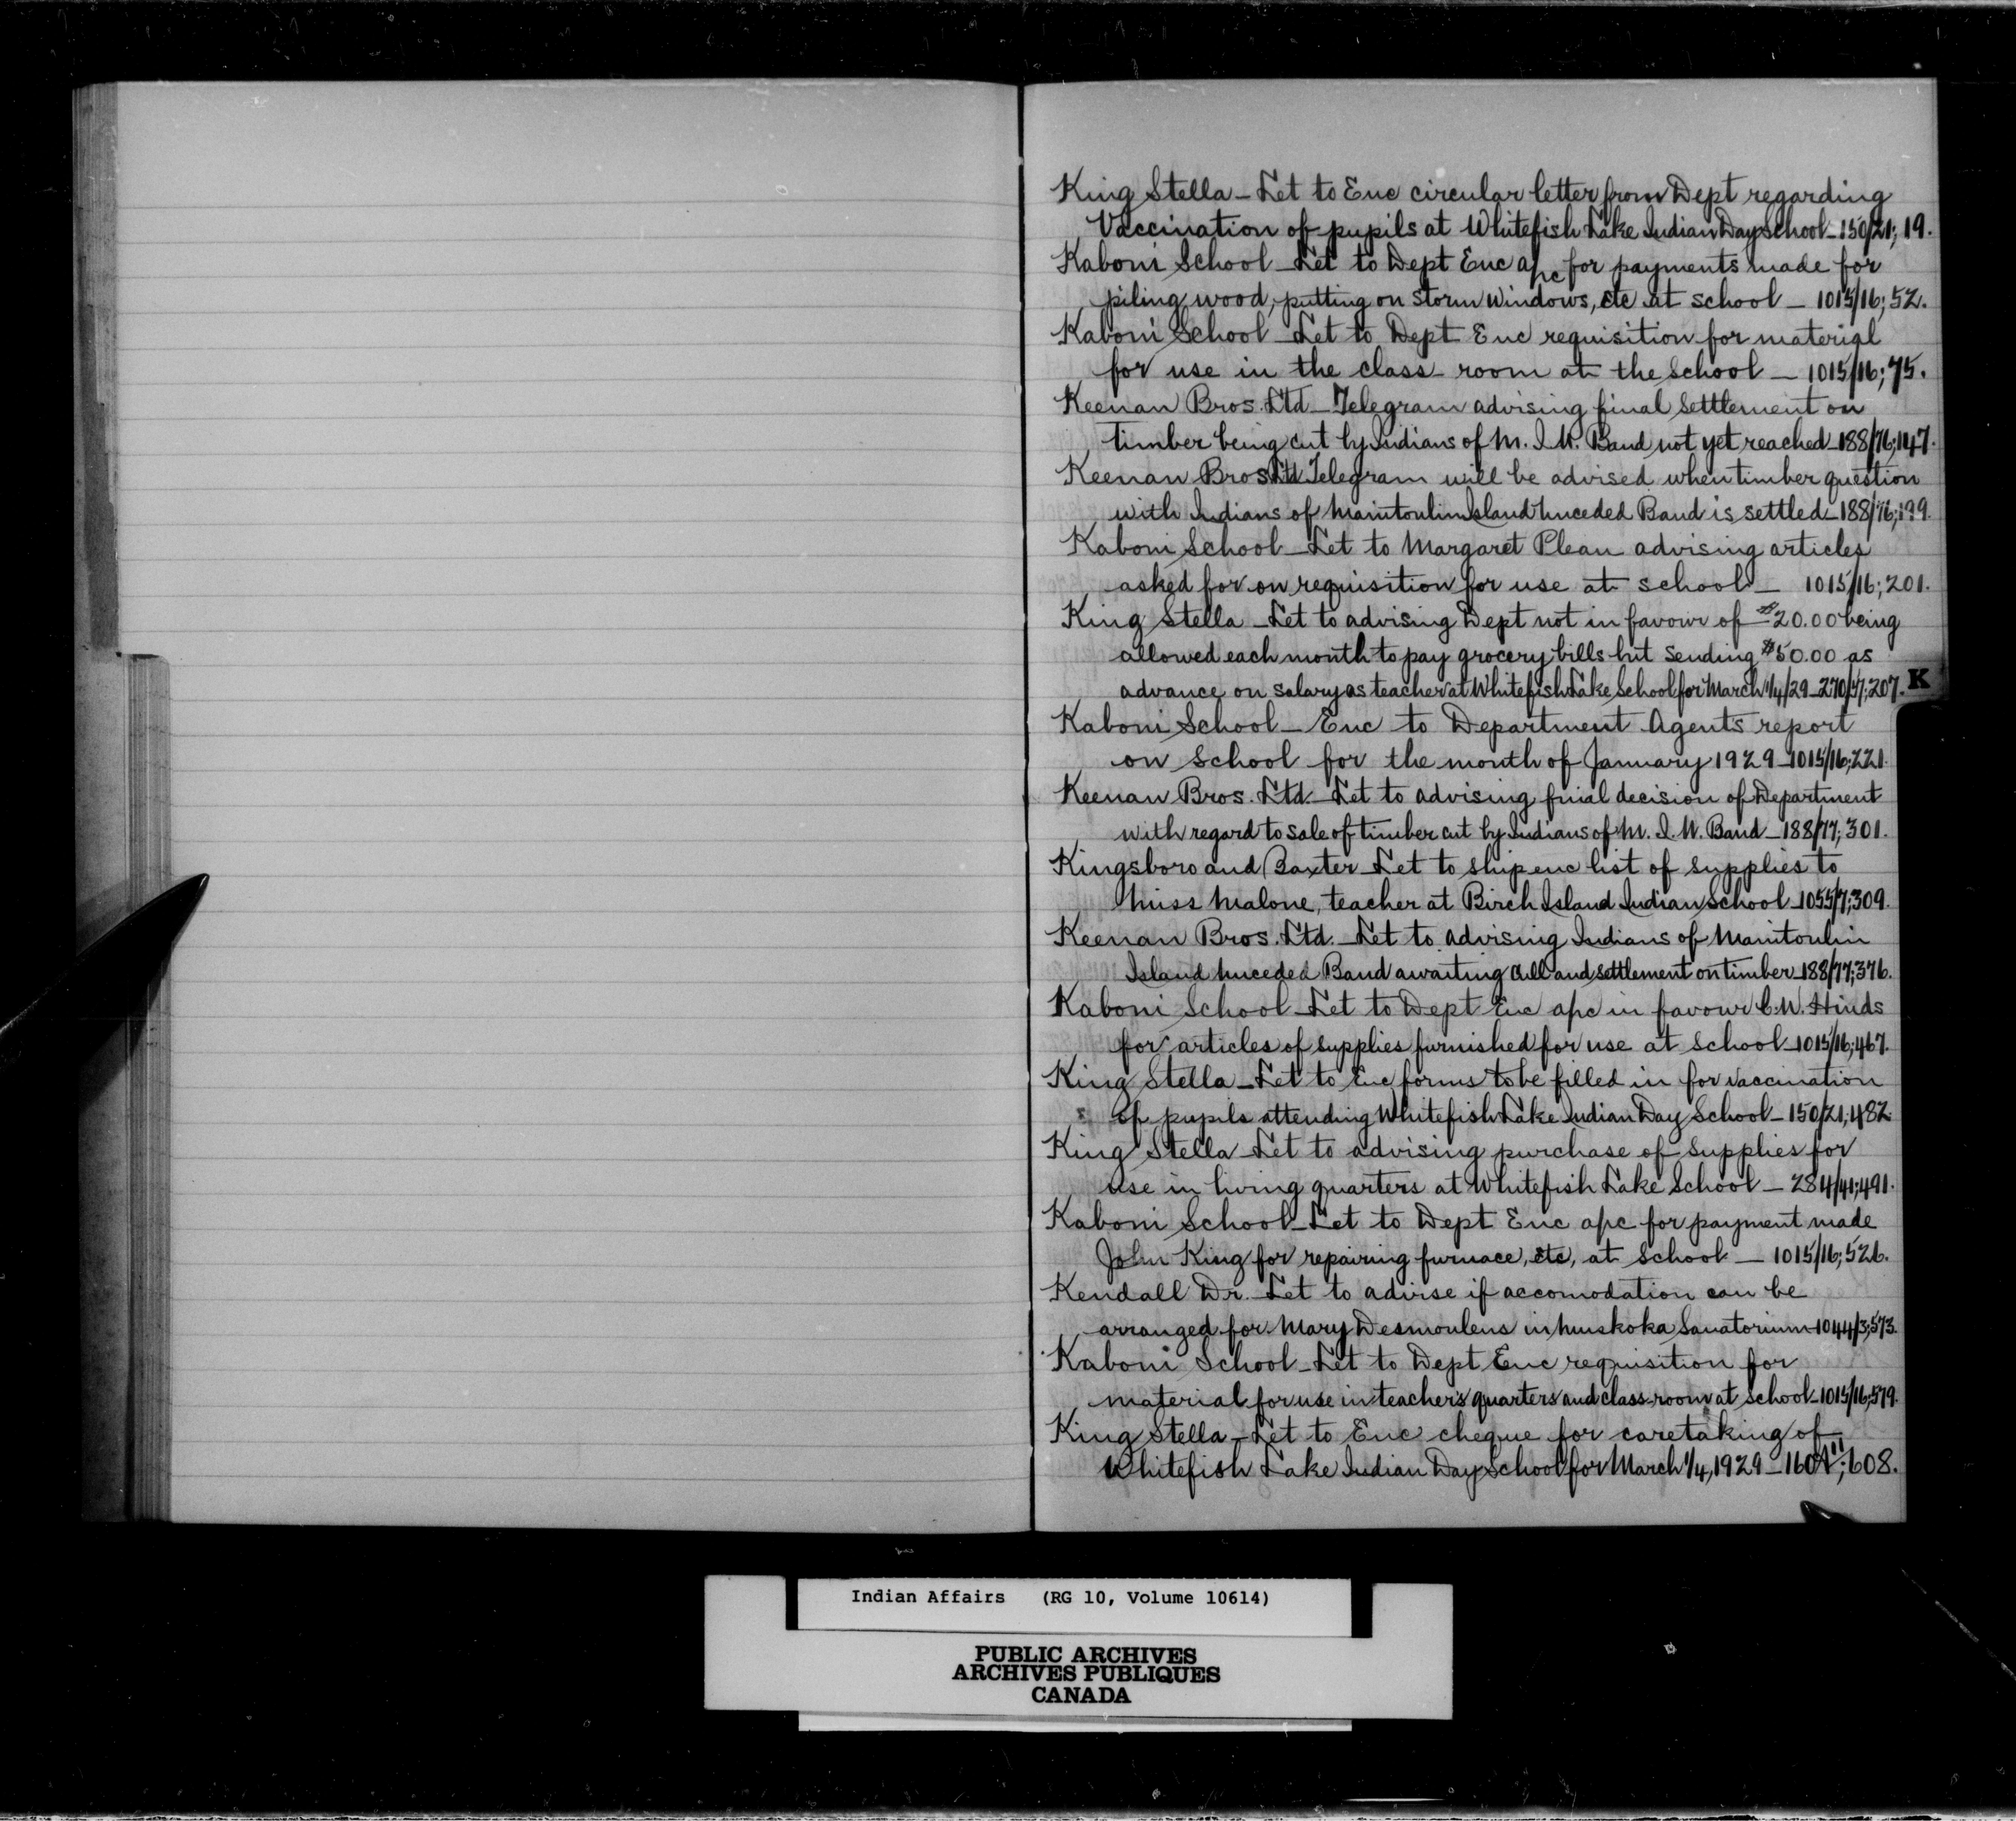 King Stella - Let to Enc circular letter from Dept regarding
Vaccination of pupils at Whitefish Lake Indian Day School - 150/21; 19.
Kaboni School - Let to Dept Enc a/c for payments made for
piling wood, putting on storm windows, etc at school - 1015/16; 52.
Kaboni School - Let to Dept Enc requisition for material
for use in the class-room at the school - 1015/16; 75.
Keenan Bros. Ltd - Telegram advising final settlement on
timber being cut by Indians of M. I. U. Band not yet reached - 188/76; 147.
Keenan Bros Ltd Telegram will be advised when timber question
with Indians of Manitoulin Island Unceded Band is settled - 188/76;
Kaboni School - Let to Margaret Plean advising articles
asked for on requisition for use at school - 1015/16; 201.
King Stella - Let to advising Dept not in favour of $20.00 being
allowed each month to pay grocery bills but sending $50.00 as
advance on salary as teacher at Whitefish Lake School for March 1/4/29 - 207.
K
Kaboni School - Enc to Department Agents report
on School for the month of January 1929 - 1015/16; 221.
Keenan Bros. Ltd. - Let to advising final decision of Department
with regard to sale of timber cut by Indians of M. I. U. Band - 188/77; 301.
Kingsboro and Baxter - Let to ship enc list of supplies to
Miss Malone, teacher at Birch Island Indian School - 1055/7; 309.
Keenan Bros. Ltd. - Let to advising Indians of Manitoulin
Island Unceded Band awaiting cull and settlement on timber - 188/77; 376.
Kaboni School - Let to Dept Enc a/c in favour C. W. Hinds
for articles of supplies furnished for use at school - 1015/16; 467.
King Stella - Let to Enc forms to be filled in for vaccination
of pupils attending Whitefish Lake Indian Day School - 150/21; 482.
King Stella - Let to advising purchase of supplies for
use in living quarters at Whitefish Lake School - 284/41; 491.
Kaboni School - Let to Dept Enc a/c for payment made
John King for repairing furnace, etc, at school - 1015/16; 526.
Kendall Dr. - Let to advise if accomodation can be
arranged for Mary Desmoulens in Muskoka Sanatorium - 1044/3; 573.
Kaboni School - Let to Dept Enc requisition for
material for use in teacher's quarters and class-room at school - 1015/16; 579.
King Stella - Let to Enc cheque for caretaking of
Whitefish Lake Indian Day School for March 1/4, 1929 - 608.
Indian Affairs (RG 10, Volume 10614)
PUBLIC ARCHIVES
ARCHIVES PUBLIQUES
CANADA